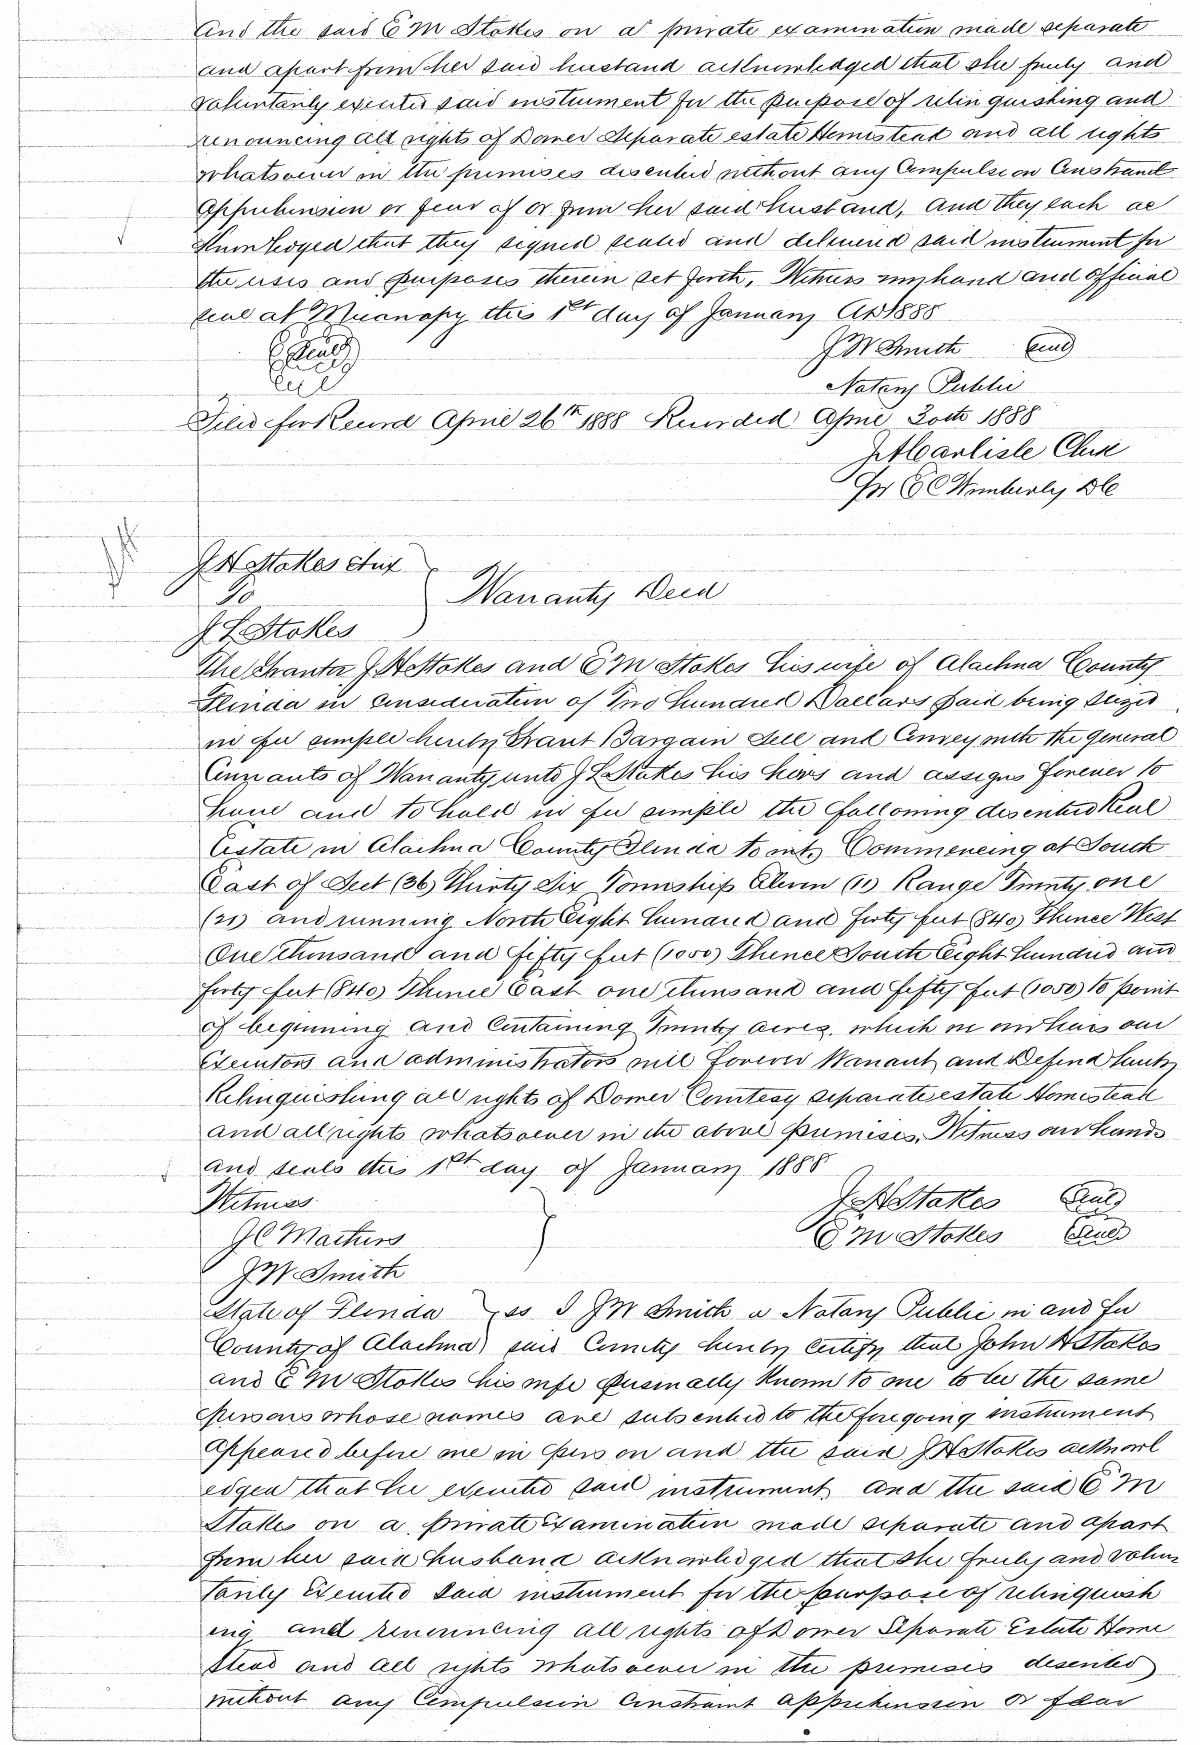 And the said E M Stokes on a private examination made separate
and apart from her said husband acknowledged that she freely and
voluntarily executed said instrument for the purpose of relin quishing and
renouncing all rights of Dower Separate estate Homestead and all rights
whatsoever in the premises described without any Compulsion Constraint
Apprehension or fear of or from her said husband, and they each ac
Knowledged that they signed sealed and delivered said instrument for
the uses and purposes therein set forth, Witness my hand and official
seal at Micanopy this 1st day of January AD 1888
J W Smith Seal
Seal
Notary Public
Filed for Record April 26th 1888 Recorded April 30th 1888
J A Carlisle Clerk
Per E C Wimberly DC
J H Stokes & ux
To
Warranty Deed
J L Stokes
The Grantor J H Stokes and E M Stokes his wife of Alachua County
Florida in consideration of Two hundred Dollars paid being seized
in fee simple hereby Grant Bargain Sell and Convey with the general
Convenants of Warranty unto J L Stokes his heirs and assigns forever to
have and to hold in fee simple the following described Real
Estate in Alachua County Florida to wit, Commencing at South
East of Sect (36) Thirty Six Township Eleven (11) Range Twenty one
(21) and running North Eight hundred and forty feet (840) Thence West
One thousand and fifty feet (1050) Thence South Eight hundred and
forty feet (840) Thence East one thousand and fifty feet (1050) to point
of beginning and Containing Twenty acres, which we our heirs our
Executors and administrators will forever Warrant and Defend hereby
Relinquishing all rights of Dower Courtesy separate estate Homestead
and all rights whatsoever in the above premises, Witness our hands
and seals this 1st day of January 1888
Witness
J H Stokes Seal
J C Mathers
E M Stokes Seal
J W Smith
State of Florida ss I J W Smith a Notary Public in and for
County of Alachua said County hereby certify that John H Stokes
and E M Stokes his wife personally Known to me to be the same
persons whose names are subscribed to the foregoing instrument
appeared before me in person and the said J H Stokes acknowl
edged that he executed said instrument and the said E M
Stokes on a private Examination made separate and apart
from her said husband acknowledged that she freely and volun
tarily Executed said instrument for the purpose of relinquish
ing and renouncing all rights of Dower Separate Estate Home
stead and all rights whatsoever in the premises described
without any Compulsion Constraint apprehension or fear